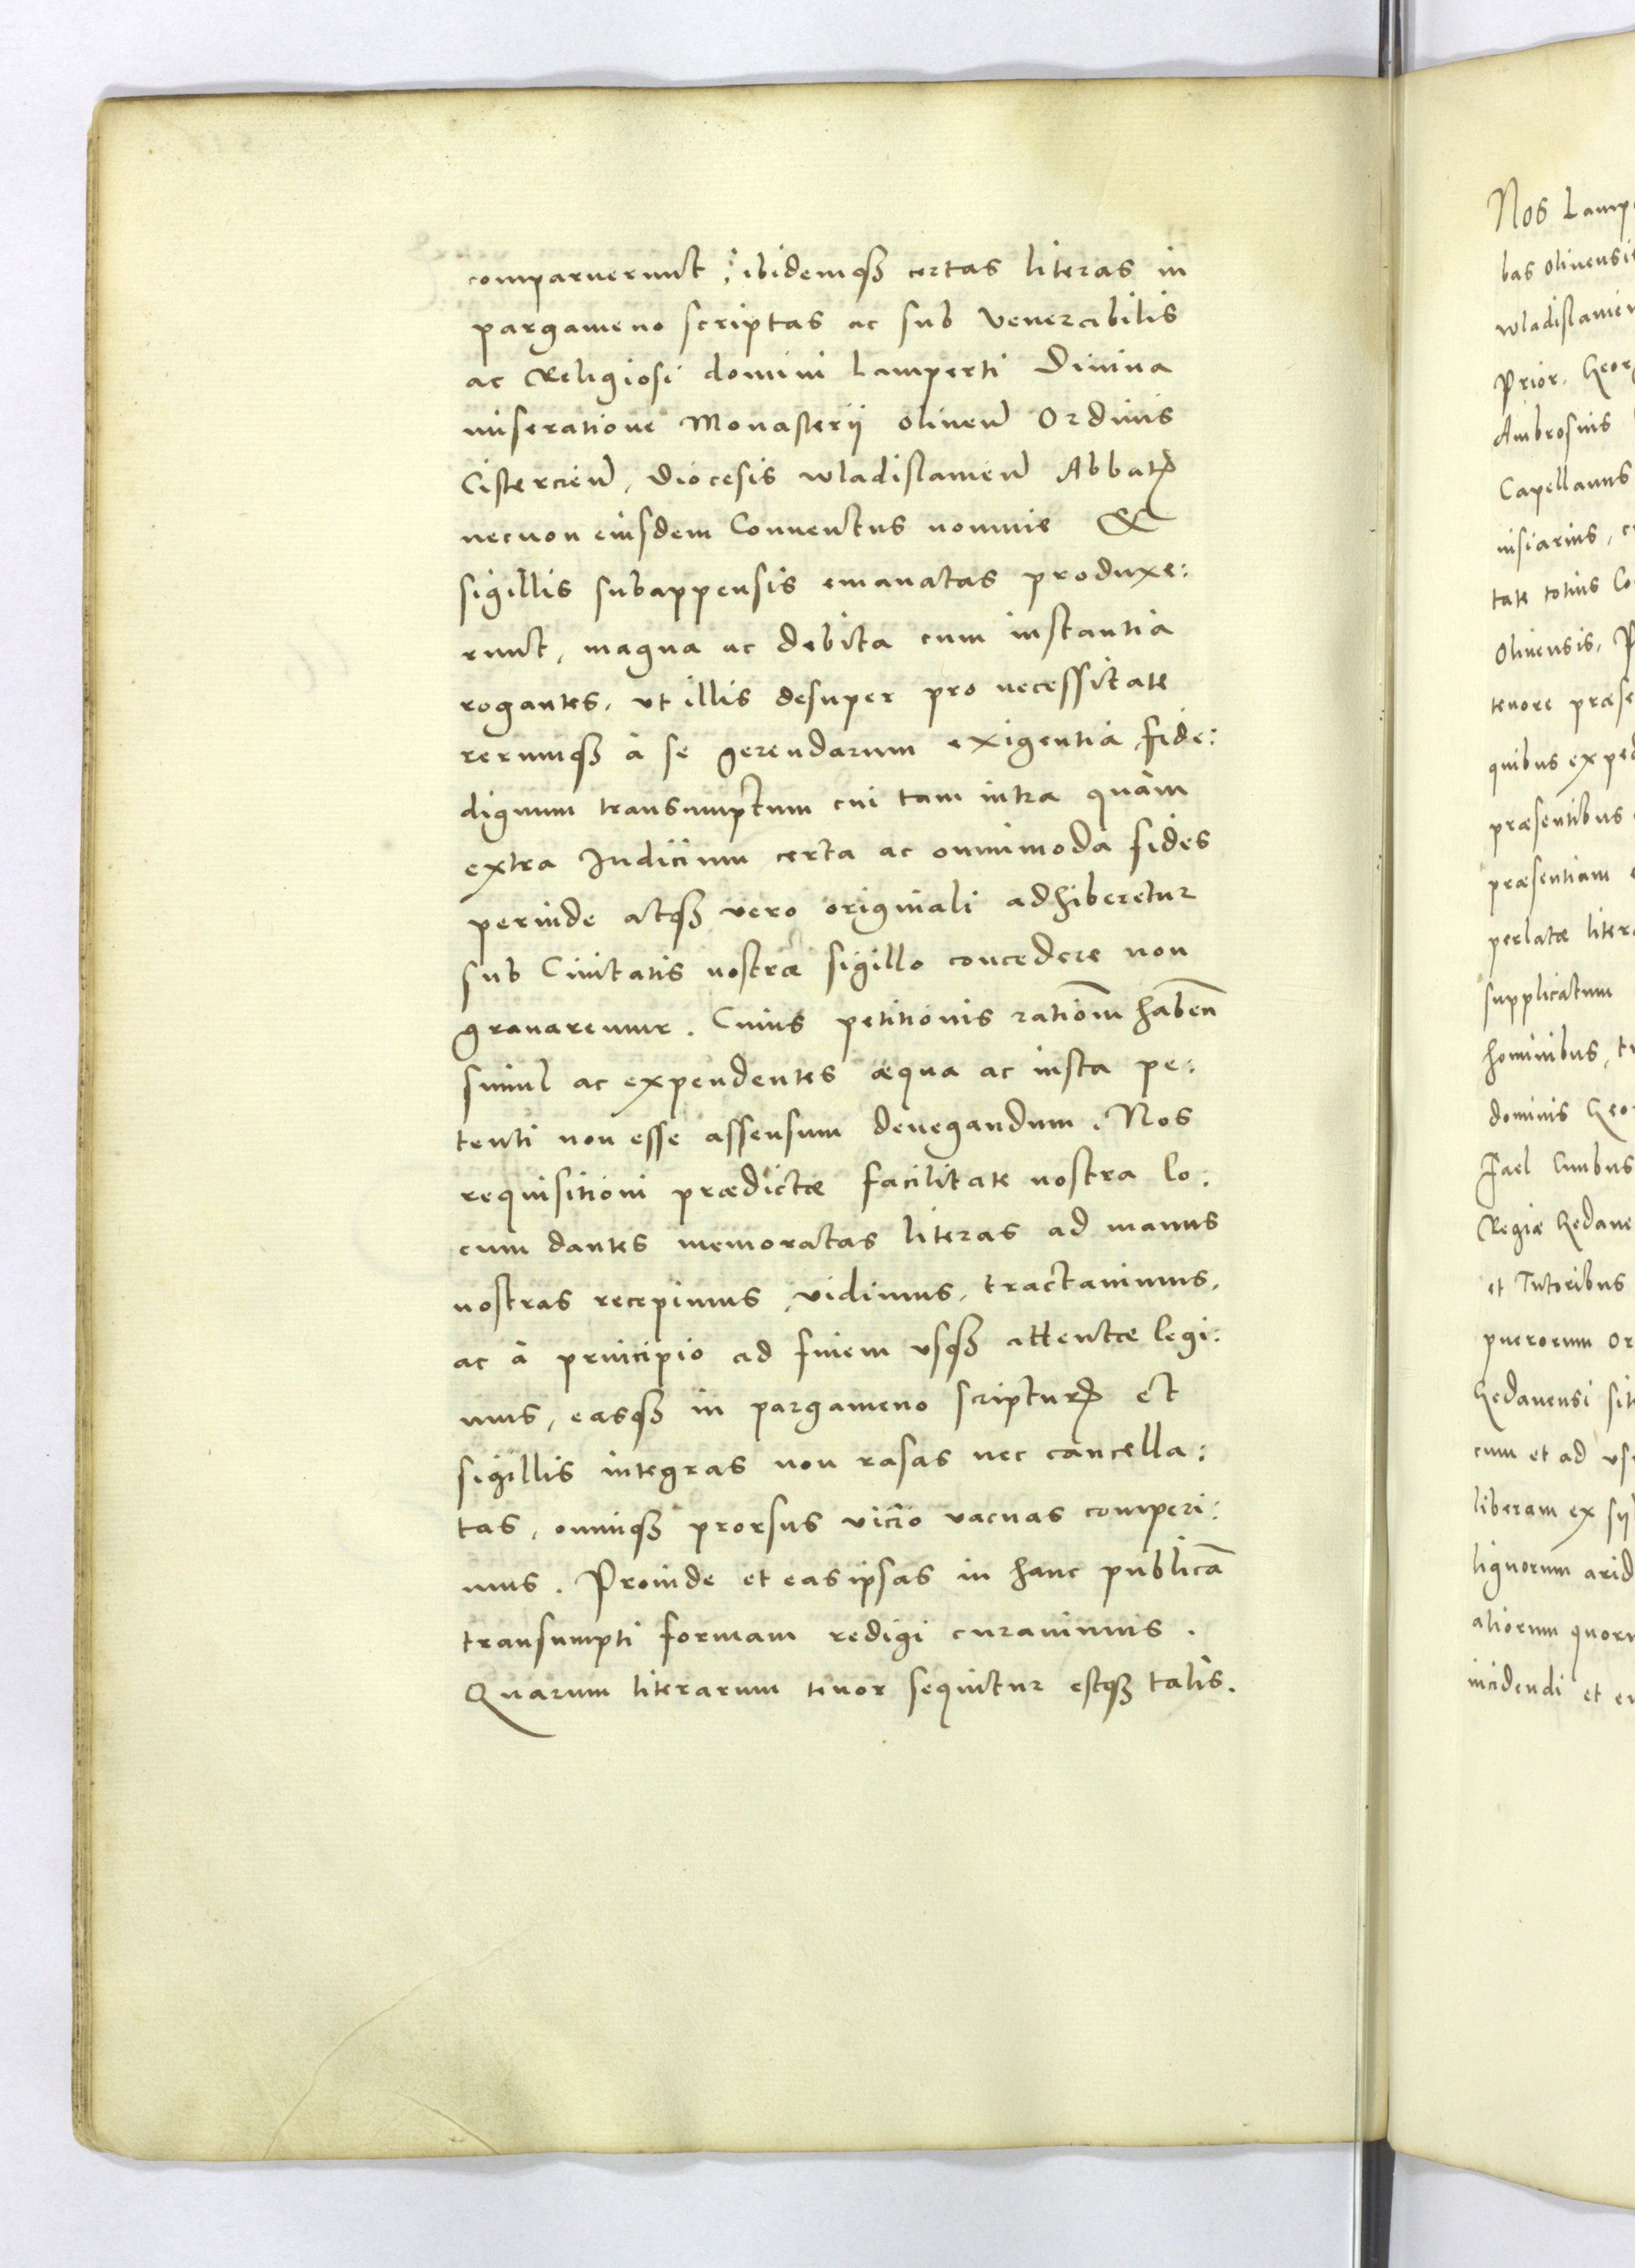 comparuerunt, ibidemq₃ certas literas in
pargameno scriptas ac sub Venerabilis
ac Religiosi domini Lamperti Diuina
miseratione Monasterij Oliuen̄ Ordinis
Cistercien̄, Diocesis wladislauien̄ Abbatꝭ
necnon eiusdem Conuentus nomine &
sigillis subappensis emanatas produxe:
runt, magna ac debita cum instantia
rogantes, vt illis desuper pro necessitate
rerumq₃ à se gerendarum exigentia fide:
dignum transumptum cui tam intra quàm
extra Iudicium certa ac omnimoda fides
perinde atq₃ vero originali adhiberetur
sub Ciuitatis nostræ sigillo concedere non
grauaremur. Cuius petitionis rationē haben̄
simul ac expendentes æqua ac iusta pe:
tenti non esse assensum denegandum. Nos
requisitioni prædictæ facilitate nostra lo:
cum dantes memoratas literas ad manus
nostras recepimus, vidimus, tractauimus,
ac à principio ad finem vsq₃ attentæ legi:
mus, easq₃ in pargameno scripturꝭ et
sigillis integras non rasas nec cancella:
tas, omniq₃ prorsus vicio vacuas comperi:
mus. Proinde et eas ipsas in hanc publicā
transumpti formam redigi curauimus.
Quarum literarum tenor sequitur estq₃ talis.
Nos Lamp
bas Oliuensis
wladislauien
Prior. Geor
Ambrosius
Capellanus
tate totius Co
Oliuensis, P
tenore præse
quibus exped
præsentibus
præsentiam
perlatæ liter
supplicatum
hominibus, t
dominis Geo
Regiæ Gedane
et Tutoribus
puerorum or
Gedanensi sit
cum et ad vs
liberam ex syl
lignorum arid
aliorum quor
incidendi et e